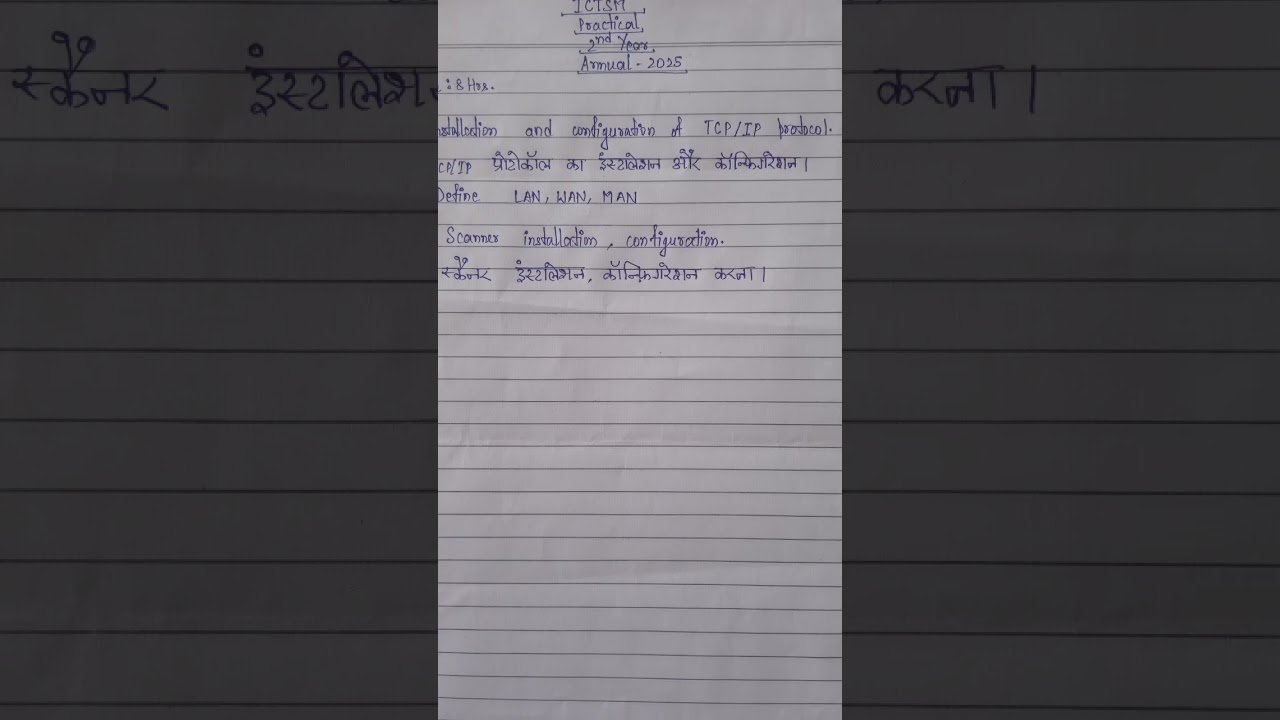 ICTSM
Practical
2nd Year
Annual - 2025
: 8 Hrs.
nstallation and configuration of TCP/IP protocol.
CP/IP प्रोटोकॉल का इंस्टलेशन और कॉन्फिगरेशन।
Define LAN, WAN, MAN
Scanner installation, configuration.
स्कैनर इंस्टलेशन, कॉन्फ़िगरेशन करना।
स्कैनर इंस्टलेश करना।